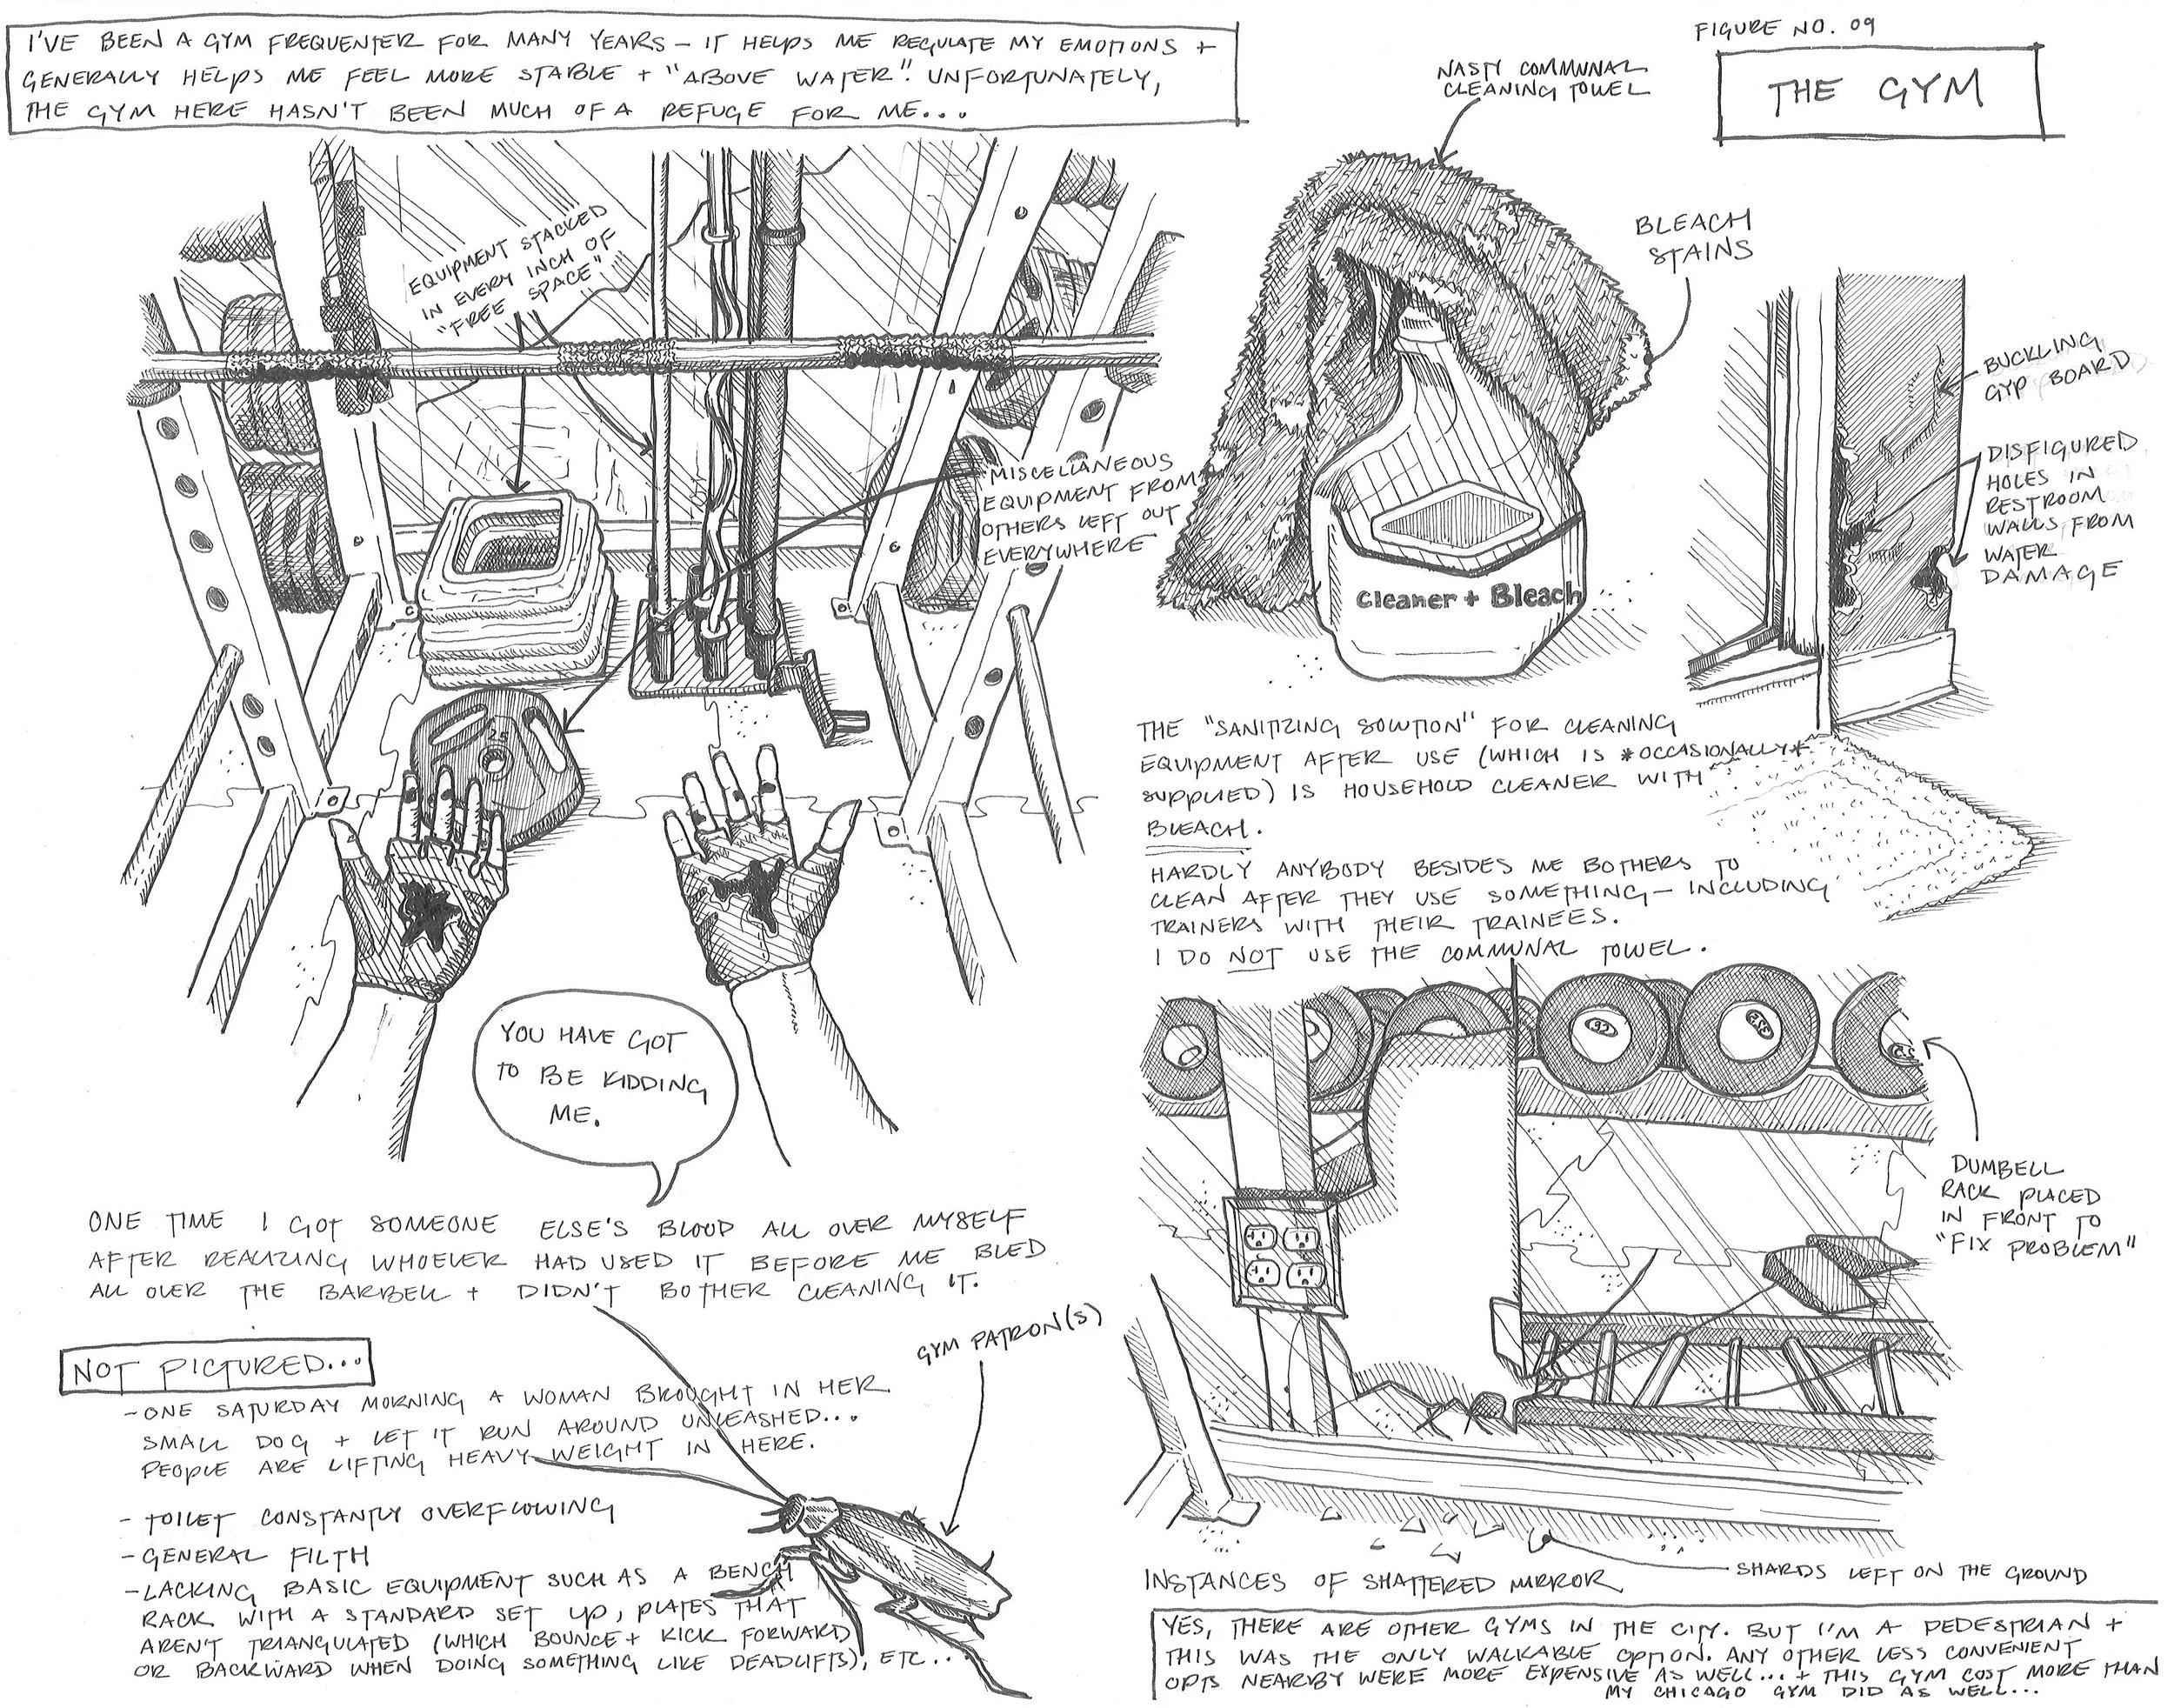 I'VE BEEN A GYM FREQUENTER FOR MANY YEARS – IT HELPS ME REGULATE MY EMOTIONS +
GENERALLY HELPS ME FEEL MORE STABLE + "ABOVE WATER". UNFORTUNATELY,
THE GYM HERE HASN'T BEEN MUCH OF A REFUGE FOR ME...
FIGURE NO. 09
THE GYM
EQUIPMENT STACKED
IN EVERY INCH OF
"FREE SPACE"
MISCELLANEOUS
EQUIPMENT FROM
OTHERS LEFT OUT
EVERYWHERE
25
YOU HAVE GOT
TO BE KIDDING
ME.
ONE TIME I GOT SOMEONE ELSE'S BLOOD ALL OVER MYSELF
AFTER REALIZING WHOEVER HAD USED IT BEFORE ME BLED
ALL OVER THE BARBELL + DIDN'T BOTHER CLEANING IT.
NOT PICTURED...
- ONE SATURDAY MORNING A WOMAN BROUGHT IN HER
SMALL DOG + LET IT RUN AROUND UNLEASHED...
PEOPLE ARE LIFTING HEAVY WEIGHT IN HERE.
- TOILET CONSTANTLY OVERFLOWING
- GENERAL FILTH
- LACKING BASIC EQUIPMENT SUCH AS A BENCH
RACK WITH A STANDARD SET UP, PLATES THAT
AREN'T TRIANGULATED (WHICH BOUNCE + KICK FORWARD
OR BACKWARD WHEN DOING SOMETHING LIKE DEADLIFTS), ETC...
GYM PATRON(S)
NASTY COMMUNAL
CLEANING TOWEL
BLEACH
STAINS
Cleaner + Bleach
BUCKLING
GYP BOARD
DISFIGURED
HOLES IN
RESTROOM
WALLS FROM
WATER
DAMAGE
THE "SANITIZING SOLUTION" FOR CLEANING
EQUIPMENT AFTER USE (WHICH IS *OCCASIONALLY*
SUPPLIED) IS HOUSEHOLD CLEANER WITH
BLEACH.
HARDLY ANYBODY BESIDES ME BOTHERS TO
CLEAN AFTER THEY USE SOMETHING – INCLUDING
TRAINERS WITH THEIR TRAINEES.
I DO NOT USE THE COMMUNAL TOWEL.
DUMBELL
RACK PLACED
IN FRONT TO
"FIX PROBLEM"
SHARDS LEFT ON THE GROUND
INSTANCES OF SHATTERED MIRROR
YES, THERE ARE OTHER GYMS IN THE CITY. BUT I'M A PEDESTRIAN +
THIS WAS THE ONLY WALKABLE OPTION. ANY OTHER LESS CONVENIENT
OPTS NEARBY WERE MORE EXPENSIVE AS WELL... + THIS GYM COST MORE THAN
MY CHICAGO GYM DID AS WELL...